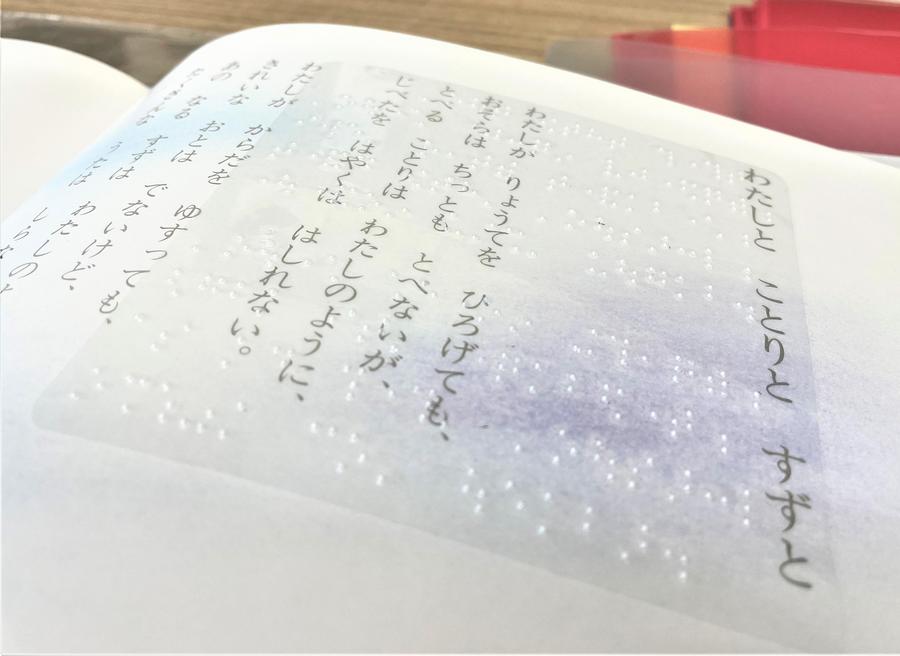 わたしと ことりと すずと
わたしが りょうてを ひろげても、
おそらは ちっとも とべないが、
とべる ことりは わたしのように、
じべたを はやくは はしれない。
わたしが からだを ゆすっても、
きれいな おとは でないけど、
あの なる すずは わたしの
うたは しらな